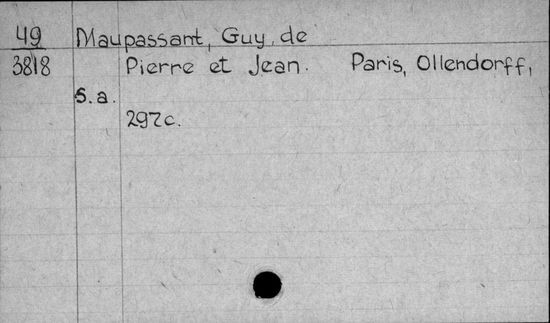 49 Maupassant, Guy, de
3818 Pierre et Jean. Paris, Ollendorff,
s.a.
297c.